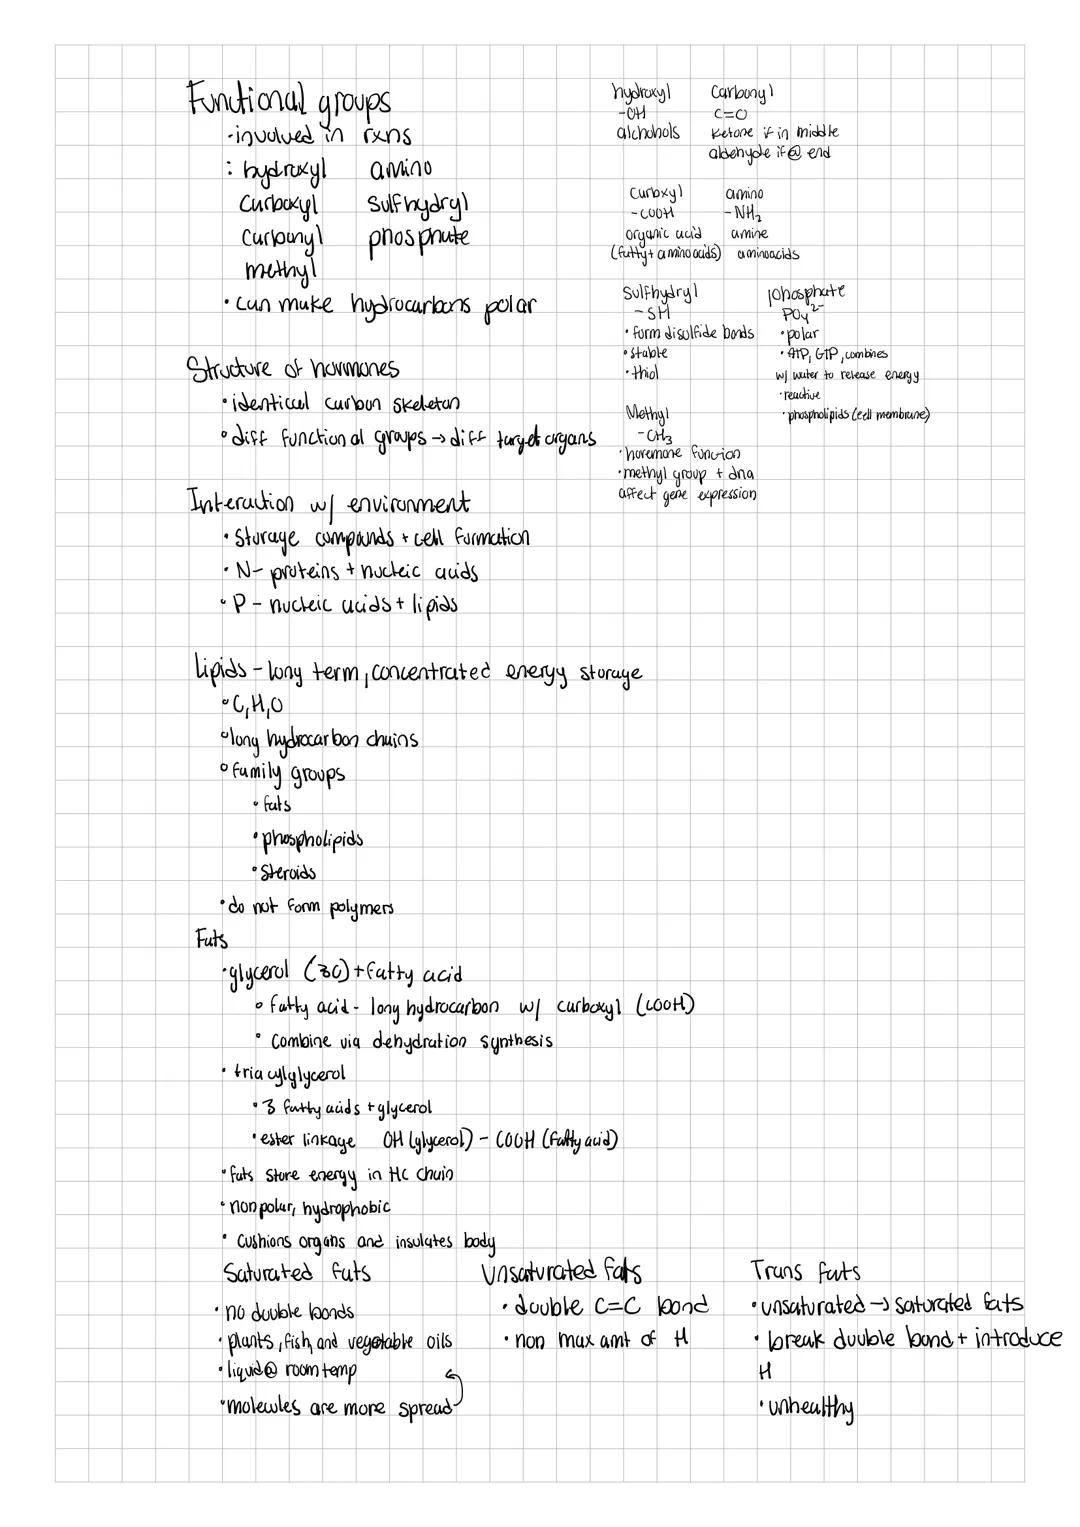 Functional groups
·involved in rxns
: hydroxyl amino
Carboxyl sulfhydryl
Carbonyl phosphate
methyl
·can make hydrocarbons polar
hydroxyl
-OH
alchohols
Carbonyl
C=O
ketone if in middle
aldehyde if @ end
Carboxyl
-COOH
organic acid
(fatty+ amino acids)
amino
-NH₂
amine
aminoacids
Sulfhydryl
-SH
·form disulfide bonds
·stable
·thiol
phosphate
PO₄²⁻
·polar
·ATP, GTP, combines
w/ water to release energy
·reactive
·phospholipids (cell membrane)
Methyl
-CH₃
·horemone function
·methyl group + dna
affect gene expression
Structure of hormones
·identical carbon skeleton
·diff functional groups → diff target organs
Interaction w/ environment
·storage compounds + cell formation
·N- proteins + nucleic acids
·P - nucleic acids + lipids
Lipids - long term, concentrated energy storage
·C,H,O
·long hydrocarbon chains
·family groups
·fats
·phospholipids
·steroids
·do not form polymers
Fats
·glycerol (3C)+fatty acid
·fatty acid - long hydrocarbon w/ carboxyl (COOH)
·combine via dehydration synthesis
·triacylglycerol
·3 fatty acids + glycerol
·ester linkage OH (glycerol) - COOH (fatty acid)
·fats store energy in HC chain
·nonpolar, hydrophobic
·cushions organs and insulates body
Saturated fats
·no double bonds
·plants, fish, and vegetable oils
·liquid @ room temp
·molecules are more spread
Unsaturated fats
·double C=C bond
·non max amt of H
Trans fats
·unsaturated → saturated fats
·break double bond + introduce
H
·unhealthy